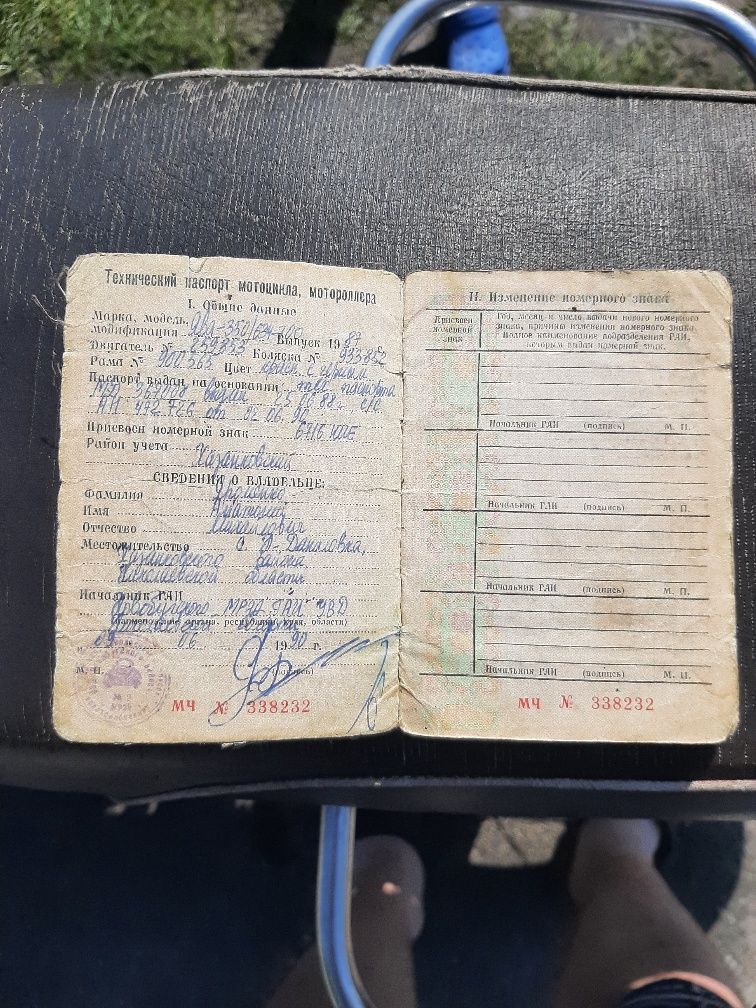 Технический паспорт мотоцикла, мотороллера
I. Общие данные
Марка, модель,
модификация Ява-350/634 Выпуск 1987
Двигатель № 259853 Коляска № 933852
Рама № Цвет красн. с черным
Паспорт выдан на основании тех. паспорта
МЭ выдан 25.06.88г.
АН 492766 от 02.06.90
Присвоен номерной знак 6416
Район учета Казанковский
СВЕДЕНИЯ О ВЛАДЕЛЬЦЕ:
Фамилия
Имя Анатолий
Отчество Михайлович
Местожительство с. Даниловка,
Казанковского района
Николаевской области
Начальник ГАИ
Новобугского МРЭО ГАИ УВД
(наименование органа, республики, края, области)
06 1990 г.
М. П. (подпись)
МЧ № 338232
II. Изменение номерного знака
Присвоен номерной знак
Год, месяц и число выдачи нового номерного знака, причина изменения номерного знака. Полное наименование подразделения ГАИ, которым выдан номерной знак.
Начальник ГАИ (подпись) М. П.
Начальник ГАИ (подпись) М. П.
Начальник ГАИ (подпись) М. П.
Начальник ГАИ (подпись) М. П.
МЧ № 338232